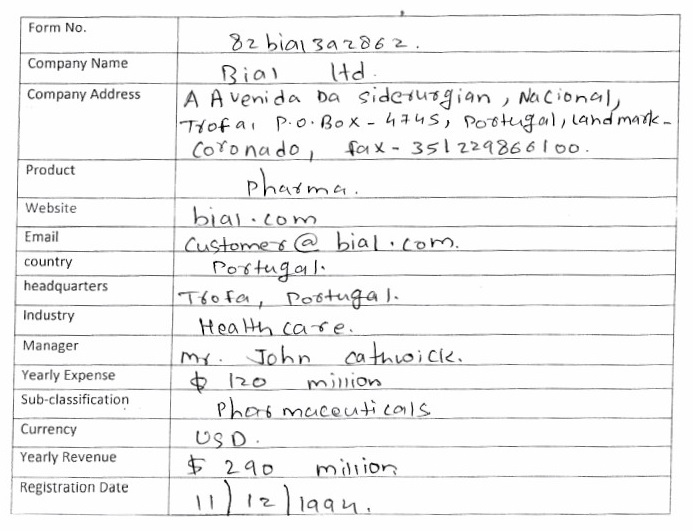 Form No.
82bial3a2862.
Company Name
Bial Ltd.
Company Address
A Avenida Da siderurgian, Nacional,
Trofa, P.O.Box - 4745, Portugal, landmark -
Coronado, fax - 351229866100.
Product
Pharma.
Website
bial.com
Email
Customer@bial.com.
country
Portugal.
headquarters
Trofa, Portugal.
Industry
Health care.
Manager
Mr. John cathwick.
Yearly Expense
$ 120 million
Sub-classification
Pharmaceuticals
Currency
USD.
Yearly Revenue
$ 290 million
Registration Date
11/12/1994.